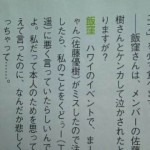 ――飯窪さんは、メンバーの佐藤
樹さんとケンカして泣かされた
りますが？
飯窪　ハワイのイベントで、ま
ちゃん（佐藤優樹）がミスしたので注
したら、私のことをくどぅー（工
遥）に悪く言っていたらしいんで
よ。私だって本人のためを思って
えて言ったのに、なんだか悲しく
っちゃって……。